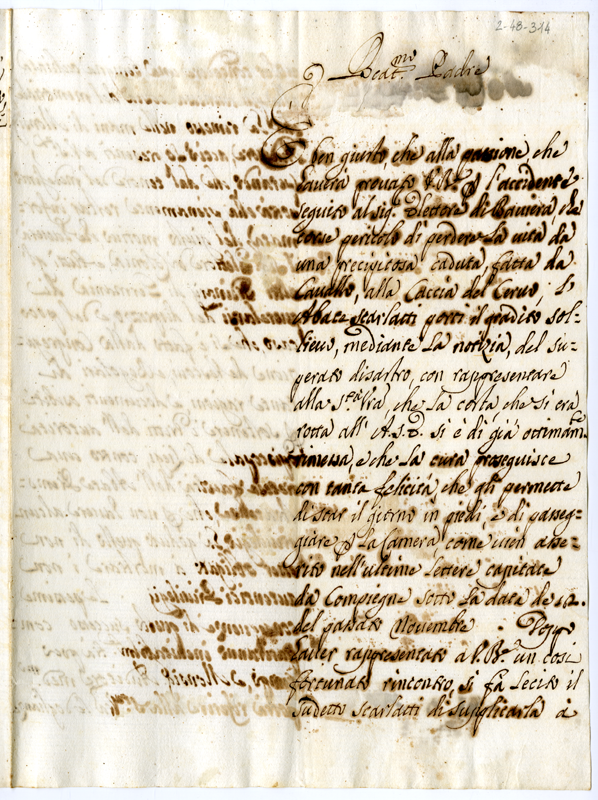 2-48-314
Beat.mo Padre
È ben giusto, che alla passione, che
haverà provato V. B.ne p l'accidente
seguito al sig. Elettore di Baviera, che
corse pericolo di perdere la vita da
una precipitosa caduta, fatta da
Cavallo, alla Caccia del Cervo, l'
Abate Scarlatti porti il gradito sol-
lievo, mediante la notizia, del su-
perato disastro, con rappresentare
alla S.tà Vra, che la costa che si era
rotta all' A. S. E. si è di già ottimam.te
rimessa, e che la cura proseguisce
con tanta felicità che gli permette
di star il giorno in piedi, e di passeg-
giare p la Camera come vien asse-
rito nell'ultime lettere capitate
da Compiegne sotto la data de 12.
del passato Novembre. Dopo
haver rappresentato a V. B.ne un così
fortunato rincontro, si fà lecito il
sudetto Scarlatti di supplicarla à